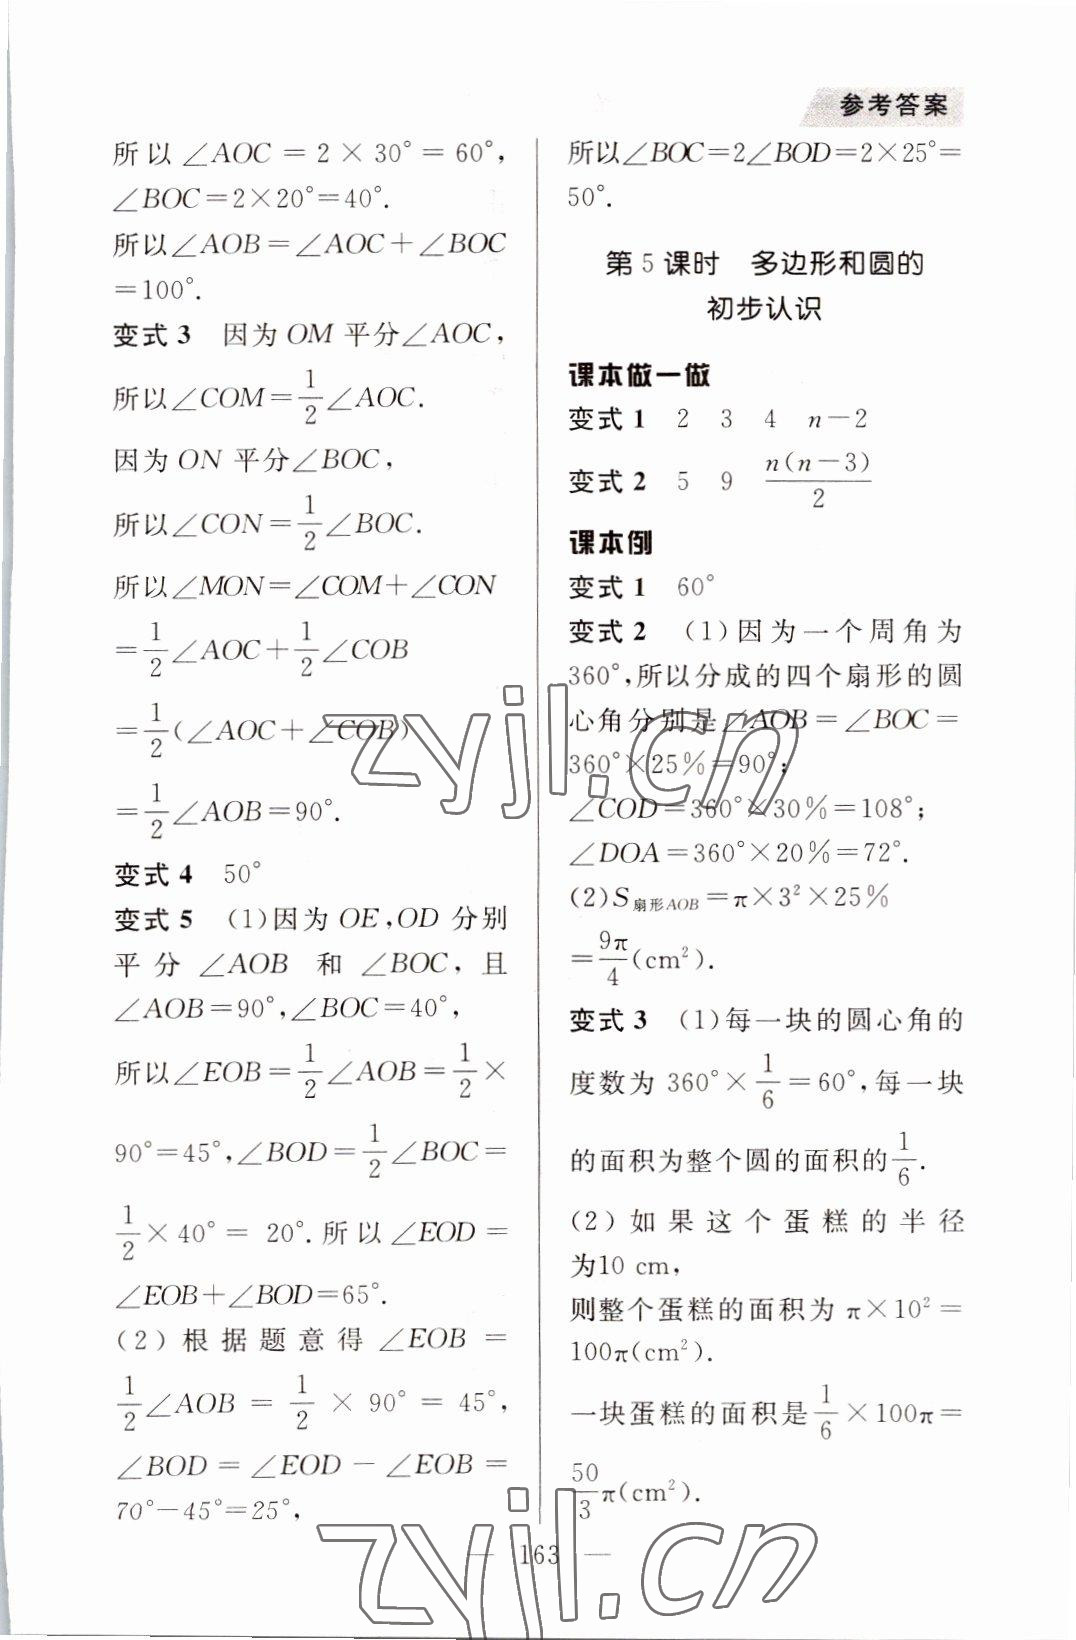 参考答案
所以∠AOC=2×30°=60°,
∠BOC=2×20°=40°.
所以∠AOB=∠AOC+∠BOC
=100°.
变式3 因为OM平分∠AOC,
所以∠COM=1/2∠AOC.
因为ON平分∠BOC,
所以∠CON=1/2∠BOC.
所以∠MON=∠COM+∠CON
=1/2∠AOC+1/2∠COB
=1/2(∠AOC+∠COB)
=1/2∠AOB=90°.
变式4 50°
变式5 (1)因为OE,OD分别
平分∠AOB和∠BOC,且
∠AOB=90°,∠BOC=40°,
所以∠EOB=1/2∠AOB=1/2×
90°=45°,∠BOD=1/2∠BOC=
1/2×40°=20°.所以∠EOD=
∠EOB+∠BOD=65°.
(2)根据题意得∠EOB=
1/2∠AOB=1/2×90°=45°,
∠BOD=∠EOD-∠EOB=
70°-45°=25°,
所以∠BOC=2∠BOD=2×25°=
50°.
第5课时 多边形和圆的
初步认识
课本做一做
变式1 2 3 4 n-2
变式2 5 9 n(n-3)/2
课本例
变式1 60°
变式2 (1)因为一个周角为
360°,所以分成的四个扇形的圆
心角分别是∠AOB=∠BOC=
360°×25%=90°;
∠COD=360°×30%=108°;
∠DOA=360°×20%=72°.
(2)S扇形AOB=π×3²×25%
=9π/4(cm²).
变式3 (1)每一块的圆心角的
度数为360°×1/6=60°,每一块
的面积为整个圆的面积的1/6.
(2)如果这个蛋糕的半径
为10 cm,
则整个蛋糕的面积为π×10²=
100π(cm²).
一块蛋糕的面积是1/6×100π=
50/3π(cm²).
— 163 —
zyjl.cn
zyjl.cn